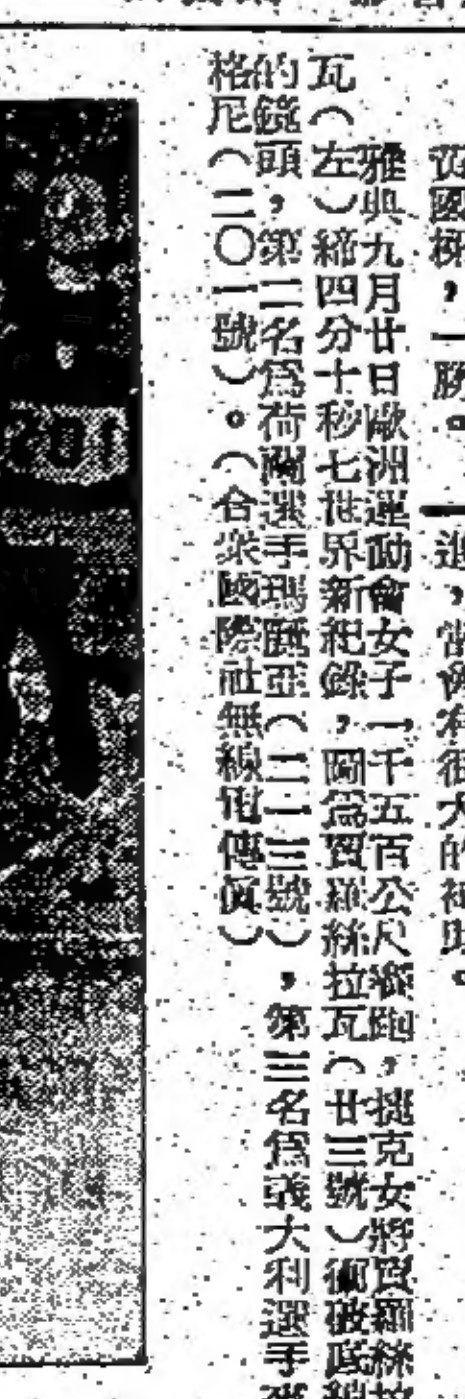 勝。
進，當會有很大的
雅典九月廿日歐洲運動會女子一千五百公尺賽跑，捷克女將賈羅絲
瓦（左）締四分十秒七世界新紀錄，圖爲賈羅絲拉瓦（廿三號）衝破
的鏡頭，第二名爲荷蘭選手瑪麗亞（二一三號），第三名爲義大利選手
格尼（二〇一號）。（合衆國際社無線電傳眞）
201